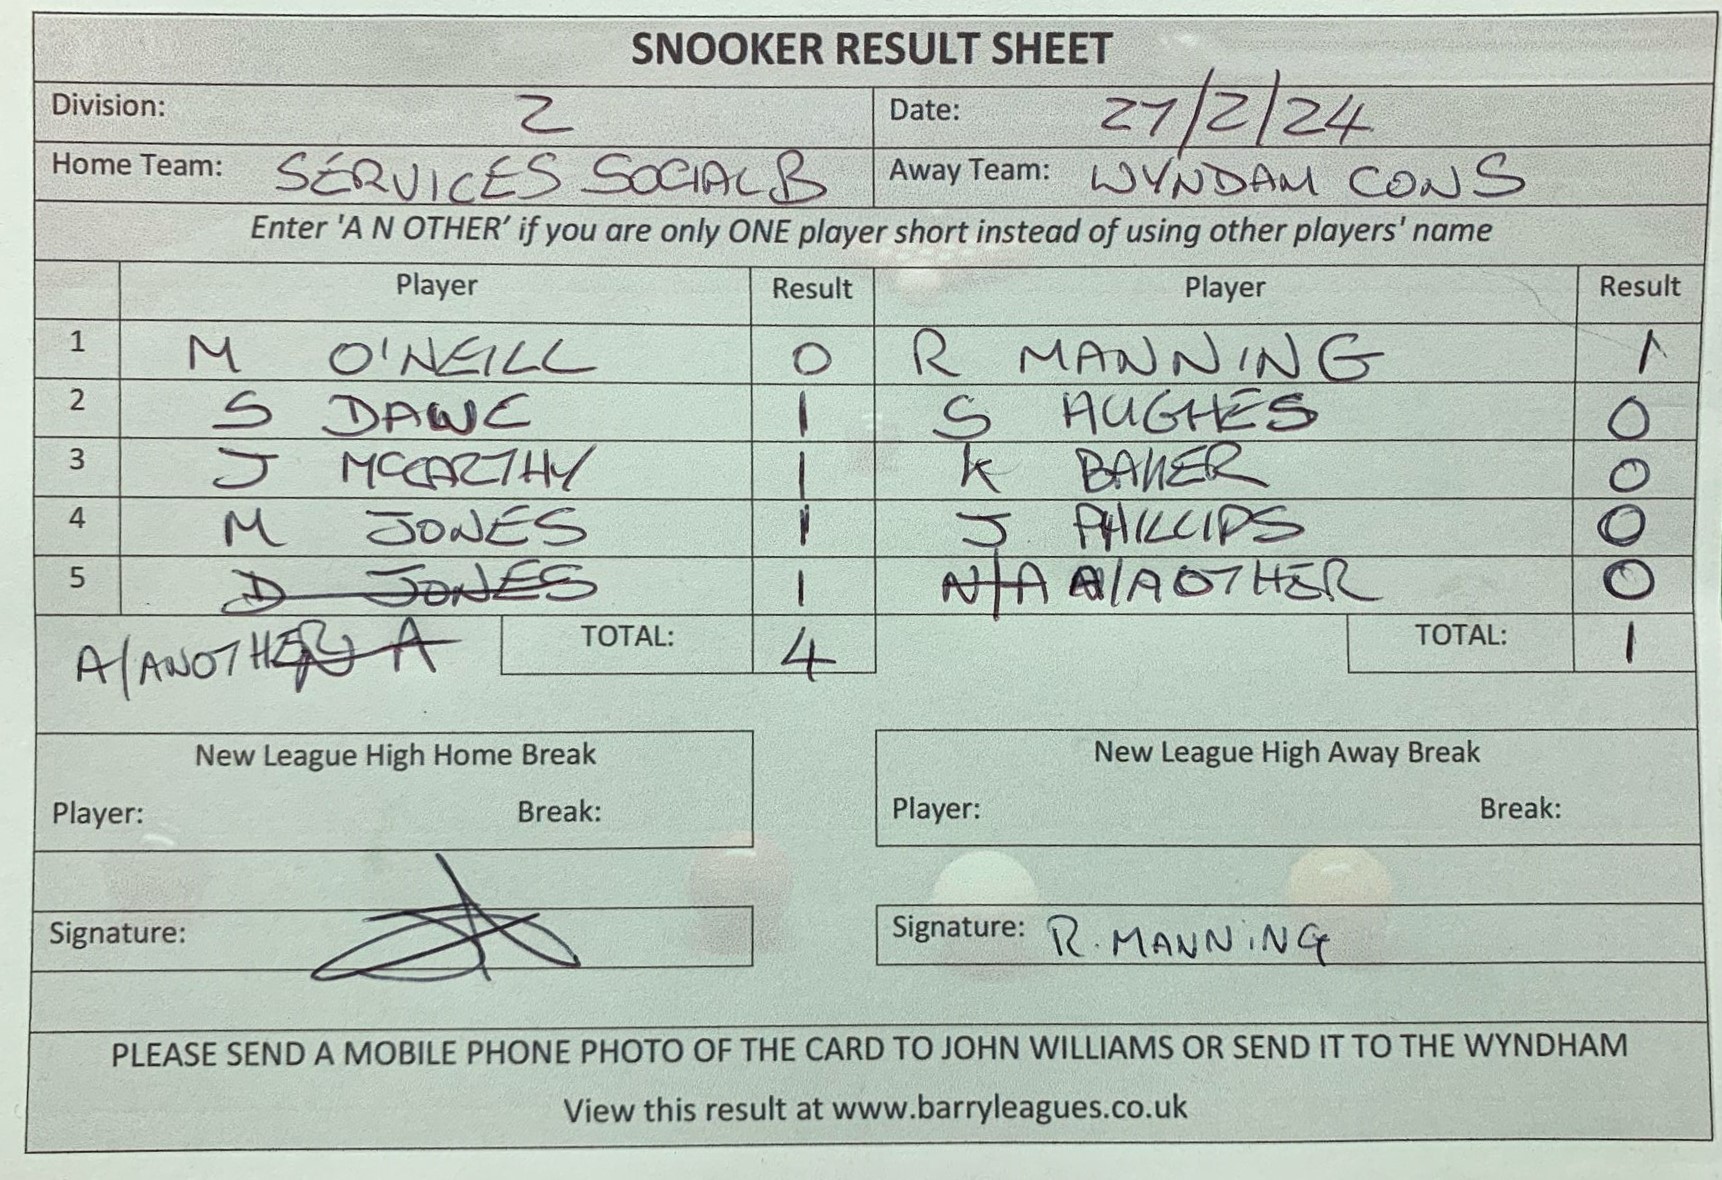 SNOOKER RESULT SHEET
Division: 2 Date: 27/2/24
Home Team: SERVICES SOCIAL B Away Team: WYNDAM CONS
Enter 'A N OTHER' if you are only ONE player short instead of using other players' name
Player Result Player Result
1 M O'NEILL 0 R MANNING 1
2 S DAWE 1 S HUGHES 0
3 J MCCARTHY 1 K BAKER 0
4 M JONES 1 J PHILLIPS 0
5 D JONES 1 N/A A/A OTHER 0
A/ANOTHER A TOTAL: 4 TOTAL: 1
New League High Home Break New League High Away Break
Player: Break: Player: Break:
Signature: Signature: R. MANNING
PLEASE SEND A MOBILE PHONE PHOTO OF THE CARD TO JOHN WILLIAMS OR SEND IT TO THE WYNDHAM
View this result at www.barryleagues.co.uk